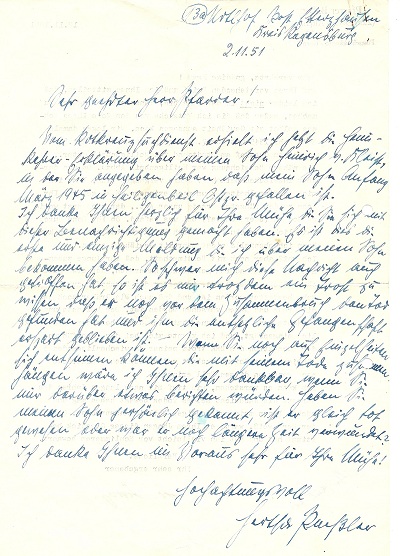 (13a) Post Etterzhausen
Kreis Regensburg,
2.11.51
Sehr geehrter Herr Pfarrer!
Vom Rotkreuzsuchdienst erhielt ich jetzt die Heim-
kehrer-Erklärung über meinen Sohn Heinrich v. Kleist,
in der Sie angegeben haben daß mein Sohn Anfang
März 1945 in Heiligenbeil Ostpr. gefallen ist.
Ich danke Ihnen herzlich für Ihre Mühe die Sie sich mit
dieser Benachrichtigung gemacht haben. Es ist dies die
erste und einzige Meldung die ich über meinen Sohn
bekommen habe. So schwer mich diese Nachricht auch
getroffen hat, so ist es mir trotzdem ein Trost zu
wissen daß er noch vor dem Zusammenbruch den Tod
gefunden hat und ihm die entsetzliche Gefangenschaft
erspart geblieben ist. Wenn Sie noch auf Einzelheiten
sich entsinnen können die mit seinem Tode zusammen
hängen wäre ich Ihnen sehr dankbar, wenn Sie
mir darüber etwas berichten würden. Haben Sie
meinen Sohn persönlich gekannt, ist er gleich tot
gewesen oder war er noch längere Zeit verwundet?
Ich danke Ihnen im Voraus sehr für Ihre Mühe!
Hochachtungsvoll
Hertha